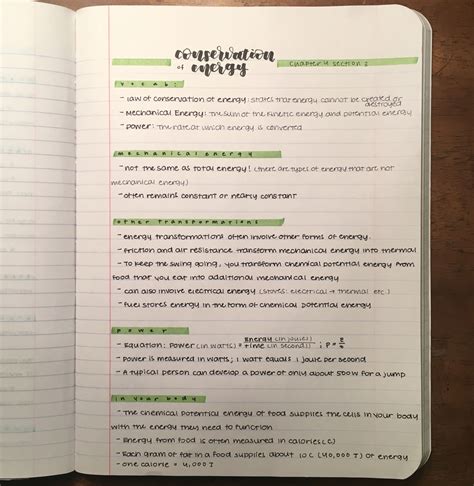 conservation
of energy
chapter 4 section 2
vocab:
- law of conservation of energy: states that energy cannot be created or
destroyed
- Mechanical Energy: The sum of the kinetic energy and potential energy
- power: The rate at which energy is converted
mechanical energy
- not the same as total energy! (there are types of energy that are not
mechanical energy)
- often remains constant or nearly constant
other transformations
- energy transformations often involve other forms of energy.
- friction and air resistance transform mechanical energy into thermal
- To keep the swing going, you transform chemical potential energy from
food that you eat into additional mechanical energy
- can also involve electrical energy (stoves: electrical → thermal etc.)
- fuel stores energy in the form of chemical potential energy
power
- Equation: Power (in watts) = Energy (in joules) / time (in seconds) ; P = E/t
- Power is measured in watts; 1 watt equals 1 joule per second
- A typical person can develop a power of only about 500W for a jump
in your body
- The chemical potential energy of food supplies the cells in your body
with the energy they need to function
- Energy from food is often measured in calories (C)
- Each gram of fat in a food supplies about 10 C (40,000 J) of energy
- one calorie = 4,000 J